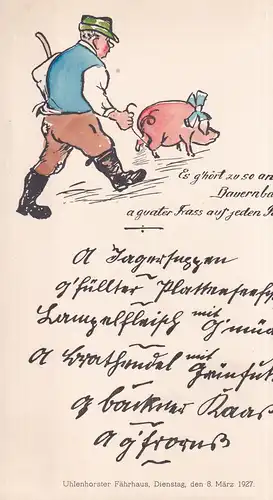 Es g'hört zu so an
Bauernba
a guater Frass auf jeden F
A Jagersuppen
g'füllter Plattenseefi
Lampelfleisch mit G'müa
A Brathendel mit Grünfut
A backner Kaas
A g'frorns
Uhlenhorster Fährhaus, Dienstag, den 8. März 1927.